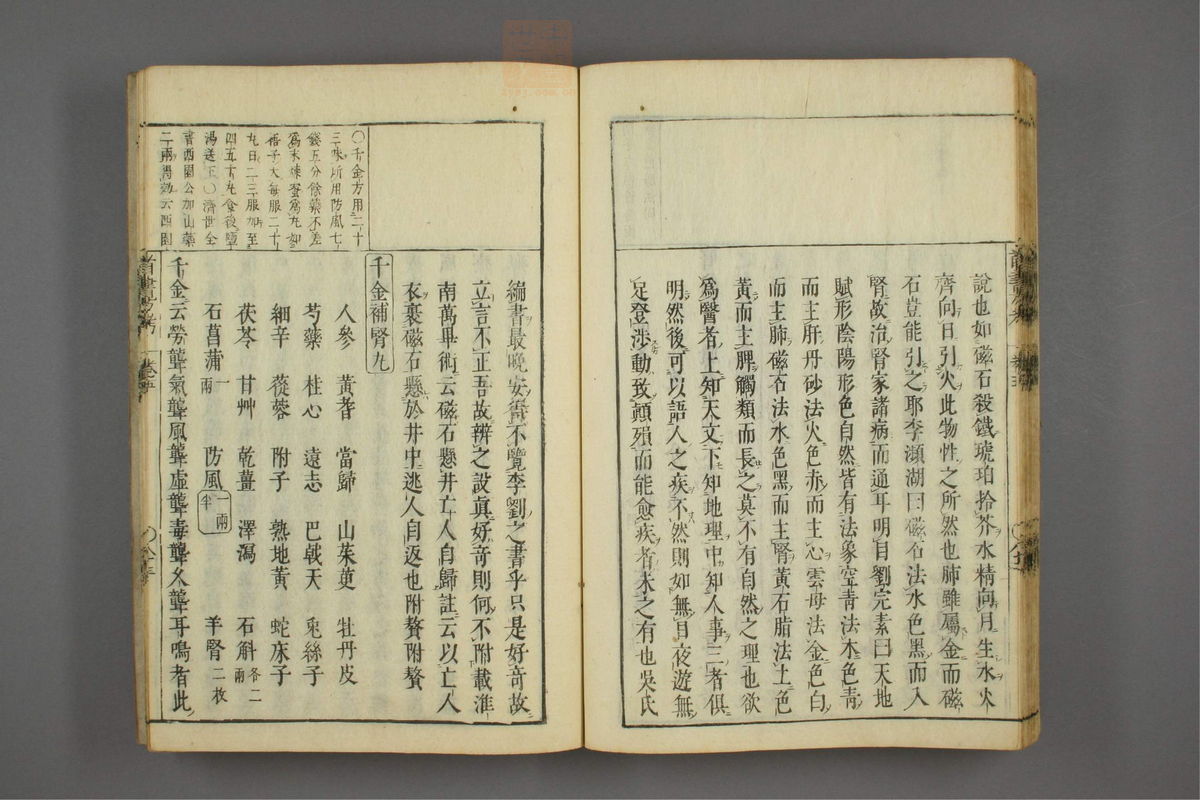 說也如磁石殺鐵琥珀拾芥水精向月生水火
齊向日引火此物性之所然也肺雖屬金而磁
石豈能引之耶李瀕湖曰磁石法水色黑而入
腎故治腎家諸病而通耳明目劉完素曰天地
賦形陰陽形色自然皆有法象空青法木色青
而主肝丹砂法火色赤而主心雲母法金色白
而主肺磁石法水色黑而主腎黃石脂法土色
黃而主脾觸類而長之莫不有自然之理也欲
為醫者上知天文下知地理中知人事三者俱
明然後可以語人之疾不然則如無目夜遊無
足登涉動致顛殞而能愈疾者未之有也吳氏
編書最晚安得不覽李劉之書乎只是好奇故
立言不正吾故辨之說真好奇則何不附載淮
南萬畢術云磁石懸井亡人自歸註云以亡人
衣裹磁石懸於井中逃人自返也附贅附贅
千金補腎丸
人參 黃耆 當歸 山茱萸 牡丹皮
芍藥 桂心 遠志 巴戟天 兎絲子
細辛 蓯蓉 附子 熟地黃 蛇床子
茯苓 甘艸 乾薑 澤瀉 石斛各二兩
石菖蒲一兩 防風一兩半 羊腎二枚
千金云勞聾氣聾風聾虛聾毒聾久聾耳鳴者此
〇千金方用二十
三味所用防風七
錢五分餘藥不差
為末煉蜜為丸如
梧子大每服二十
丸日二三服加至
四五十丸食後鹽
湯送下〇濟世全
書西園公加山藥
二兩得效云西園
卷五